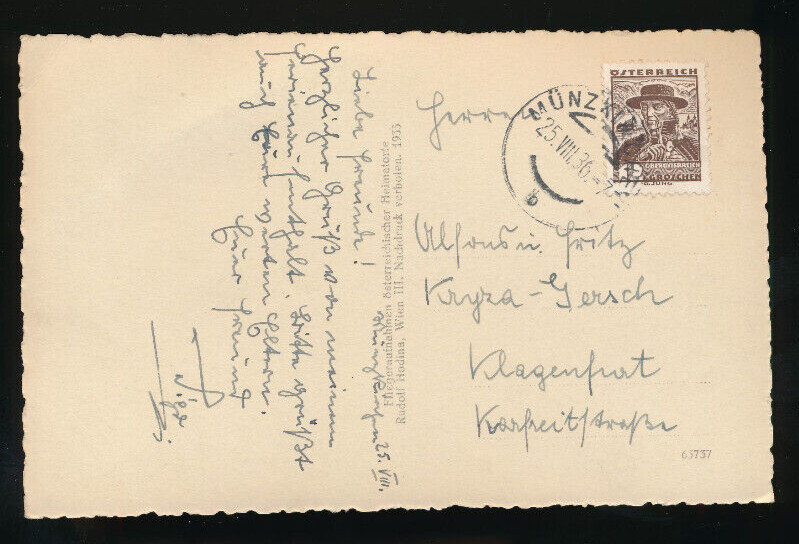 Münzkirchen 25. VIII.
Liebe Freunde!
Herzlichen Gruß von meinem
Ferienaufenthalt. Bitte grüßt
auch Eure werten Eltern.
Euer Freund
Fliegeraufnahmen österreichischer Heimatorte
Rudolf Hodina, Wien III. Nachdruck verboten. 1935
ÖSTERREICH
OBERÖSTERREICH
GROSCHEN
MÜNZKIRCHEN
25.VIII.36
b
Herren
Alfons u. Fritz
Kryza-Gersch
Klagenfurt
Karfreitstraße
63737